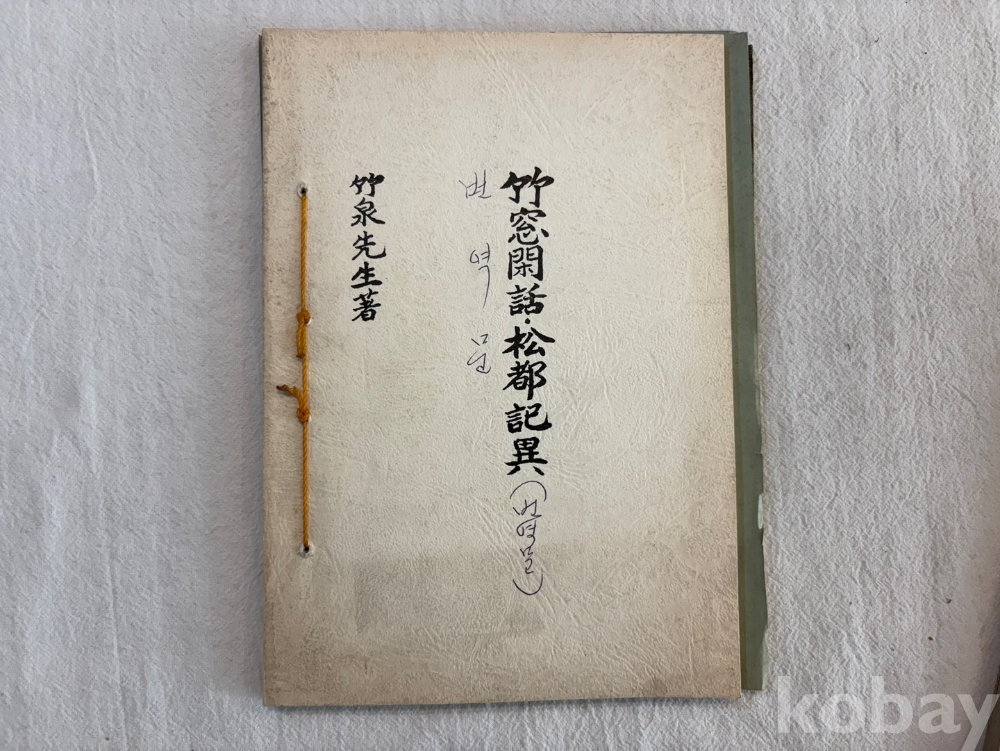 竹窓閑話·松都記異(번역문)
번역문
竹泉先生著
kobay